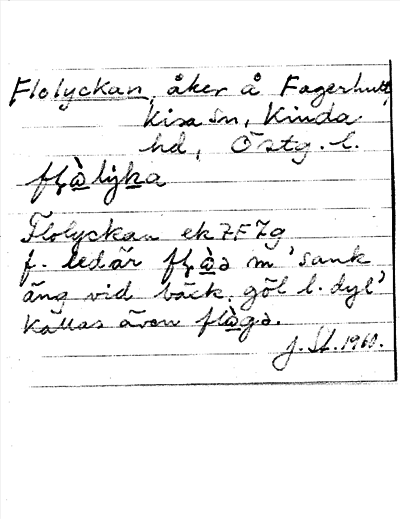 Flolyckan, åker å Fagerhult,
Kisa sn, Kinda
hd, Östg. l.
Flolyckan ek 7F7g
f. led är m 'sank
äng vid bäck, göl l. dyl'
Kallas även flågə.
J. St. 1960.